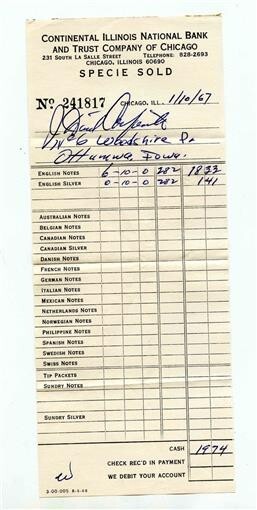 CONTINENTAL ILLINOIS NATIONAL BANK
AND TRUST COMPANY OF CHICAGO
231 SOUTH LA SALLE STREET TELEPHONE: 828-2693
CHICAGO, ILLINOIS 60690
SPECIE SOLD
No 241817 CHICAGO, ILL. 1/10/67
Woodshire Dr.
Ottumwa, Iowa.
ENGLISH NOTES 6-10-0 282 1833
ENGLISH SILVER 0-10-0 282 141
AUSTRALIAN NOTES
BELGIAN NOTES
CANADIAN NOTES
CANADIAN SILVER
DANISH NOTES
FRENCH NOTES
GERMAN NOTES
ITALIAN NOTES
MEXICAN NOTES
NETHERLANDS NOTES
NORWEGIAN NOTES
PHILIPPINE NOTES
SPANISH NOTES
SWEDISH NOTES
SWISS NOTES
TIP PACKETS
SUNDRY NOTES
SUNDRY SILVER
CASH 1974
CHECK REC'D IN PAYMENT
WE DEBIT YOUR ACCOUNT